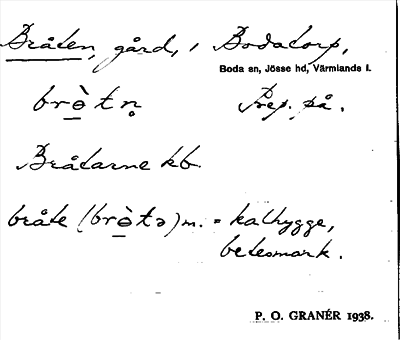 Bråten, gård, i Bodatorp,
Boda sn, Jösse hd, Värmlands l.
brò̱tn̥ Prep. på.
Bråtarne kb
bråte (brò̱tə) m. = kalhygge,
betesmark.
P. O. GRANÉR 1938.